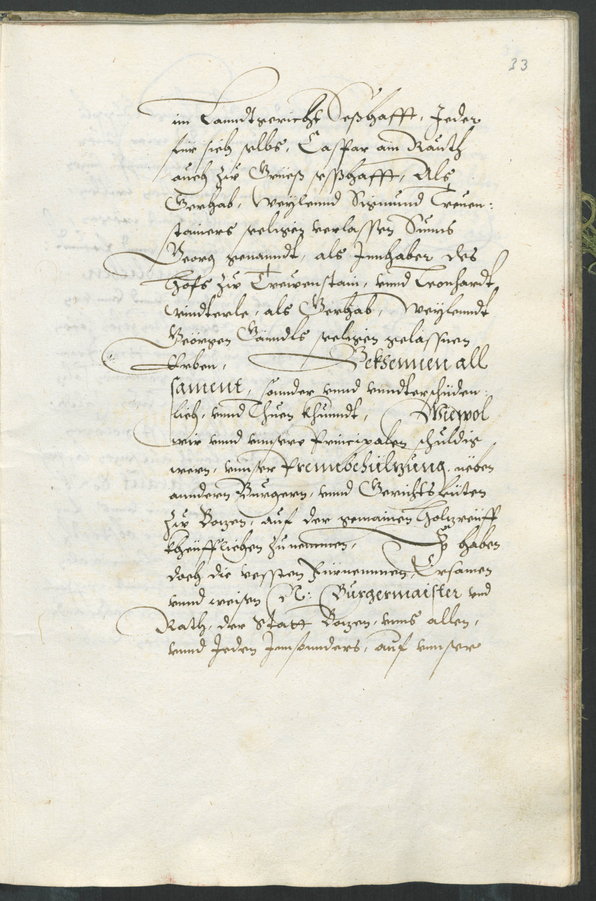 33
im Lanndtgericht Seßhafft, Jeder
für sich selbs, Caspar am Rauth
auch zu Griess sesshafft, Als
Gerhab, weylennd Sigmund Treuen-
stainers seligen verlassen Suns
Georg genanndt, als Innhaber des
Hofs zu Treuenstain, unnd Leonhardt
Vindterle, als Gerhab, weylenndt
Geörgen Gänndls seligen gelassnen
Erben, Bekhennen all
sament, sonnder unnd unndterschiden-
lich, unnd Thuen khunndt, Wiewol
wir unnd unnsere Principalen schuldig
wern, unnser Prennbehülzung, neben
anndern Burgern, unnd Gerichtsleuten
zu Bozen, auf der gemainen Holzreiff
kheufflichen zunemmen, So haben
doch die vessten Fürnemmen, Ersamen
unnd weisen N: Burgermaister und
Rath, der Statt Bozen, unns allen,
unnd Jeden Innsonnders, auf unnser